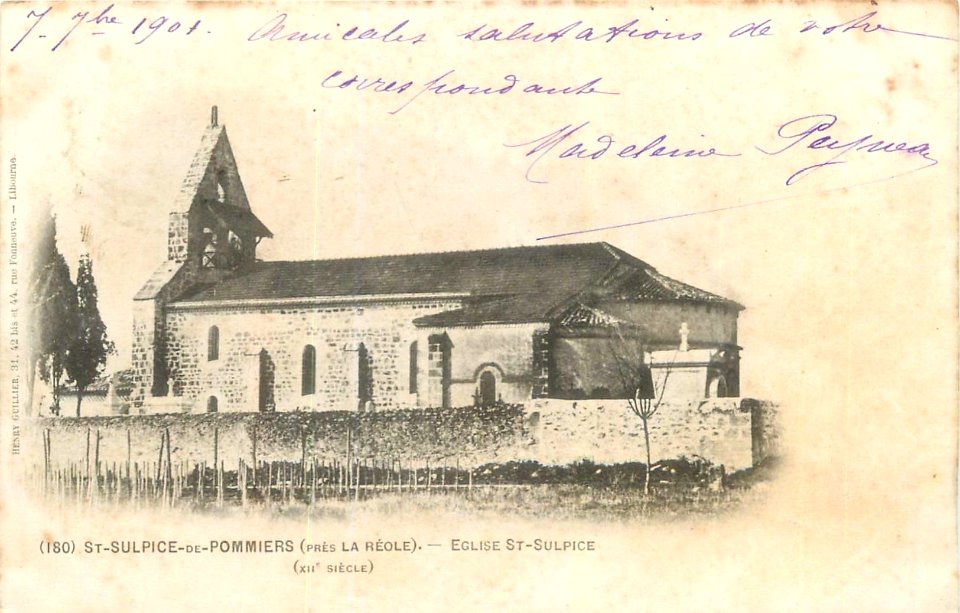 7 - 7bre 1901. Amicales salutations de votre
correspondante
Madeleine
HENRY GUILLIER, 31, 42 bis et 44, rue Fonneuve. — Libourne.
(180) ST-SULPICE-DE-POMMIERS (PRÈS LA RÉOLE). — EGLISE ST-SULPICE
(XIIe SIÈCLE)